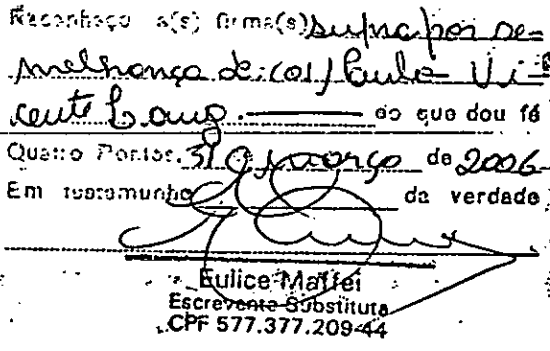 Reconheço a(s) firma(s) supra por se-
melhança de: (os) Paulo Vi-
cente Lang. do que dou fé
Quatro Pontes, 31 de março de 2006
Em testemunho da verdade
Eulice Maffei
Escrevente Substituta
CPF 577.377.209-44